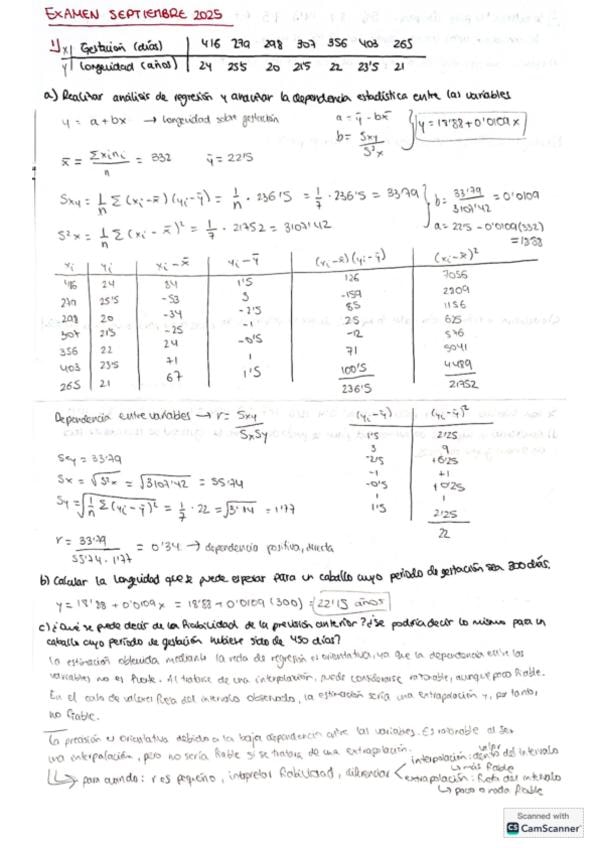 EXAMEN SEPTIEMBRE 2025
1) x | Gestación (días) 416 279 298 307 356 403 265
y | Longuidad (años) 24 25'5 20 21'5 22 23'5 21
a) Realizar análisis de regresión y analizar la dependencia estadística entre las variables
y = a + bx → longuidad sobre gestación a = ȳ - bx̄
b = Sxy / S²x } y = 18'88 + 0'0109 x
x̄ = Σxini / n = 332 ȳ = 22'5
Sxy = 1/n Σ (xi - x̄)(yi - ȳ) = 1/n · 236'5 = 1/7 · 236'5 = 33'79 } b = 33'79 / 3107'42 = 0'0109
S²x = 1/n Σ (xi - x̄)² = 1/7 · 21752 = 3107'42 a = 22'5 - 0'0109(332)
= 18'88
xi yi xi - x̄ yi - ȳ (xi - x̄)(yi - ȳ) (xi - x̄)²
416 24 84 1'5 126 7056
279 25'5 -53 3 -159 2809
298 20 -34 -2'5 85 1156
307 21'5 -25 -1 25 625
356 22 24 -0'5 -12 576
403 23'5 71 1 71 5041
265 21 67 1'5 100'5 4489
236'5 21752
Dependencia entre variables → r = Sxy / SxSy (yi - ȳ) (yi - ȳ)²
Sxy = 33'79 1'5 2'25
Sx = √S²x = √3107'42 = 55'74 3 9
Sy = √1/n Σ(yi - ȳ)² = 1/7 · 22 = √3'14 = 1'77 -2'5 +6'25
-1 +1
-0'5 +0'25
1 1
1'5 2'25
22
r = 33'79 / 55'74 · 1'77 = 0'34 → dependencia positiva, directa
b) Calcular la longuidad que se puede esperar para un caballo cuyo periodo de gestación sea 300 días.
y = 18'88 + 0'0109x = 18'88 + 0'0109 (300) = 22'15 años
c) ¿Qué se puede decir de la fiabilidad de la previsión anterior? ¿Se podría decir lo mismo para un
caballo cuyo periodo de gestación hubiese sido de 450 días?
La estimación obtenida mediante la recta de regresión es orientativa, ya que la dependencia entre las
variables no es fuerte. Al tratarse de una interpolación, puede considerarse razonable, aunque poco fiable.
En el caso de valores fuera del intervalo observado, la estimación sería una extrapolación y, por tanto,
no fiable.
La predicción es orientativa debido a la baja dependencia entre las variables. Es razonable al ser
una interpolación, pero no sería fiable si se tratara de una extrapolación.
para cuando: r es pequeño, interpretar fiabilidad, diferenciar < interpolación: valor dentro del intervalo
↳ más fiable
extrapolación: fuera del intervalo
↳ poco o nada fiable
Scanned with
CS CamScanner